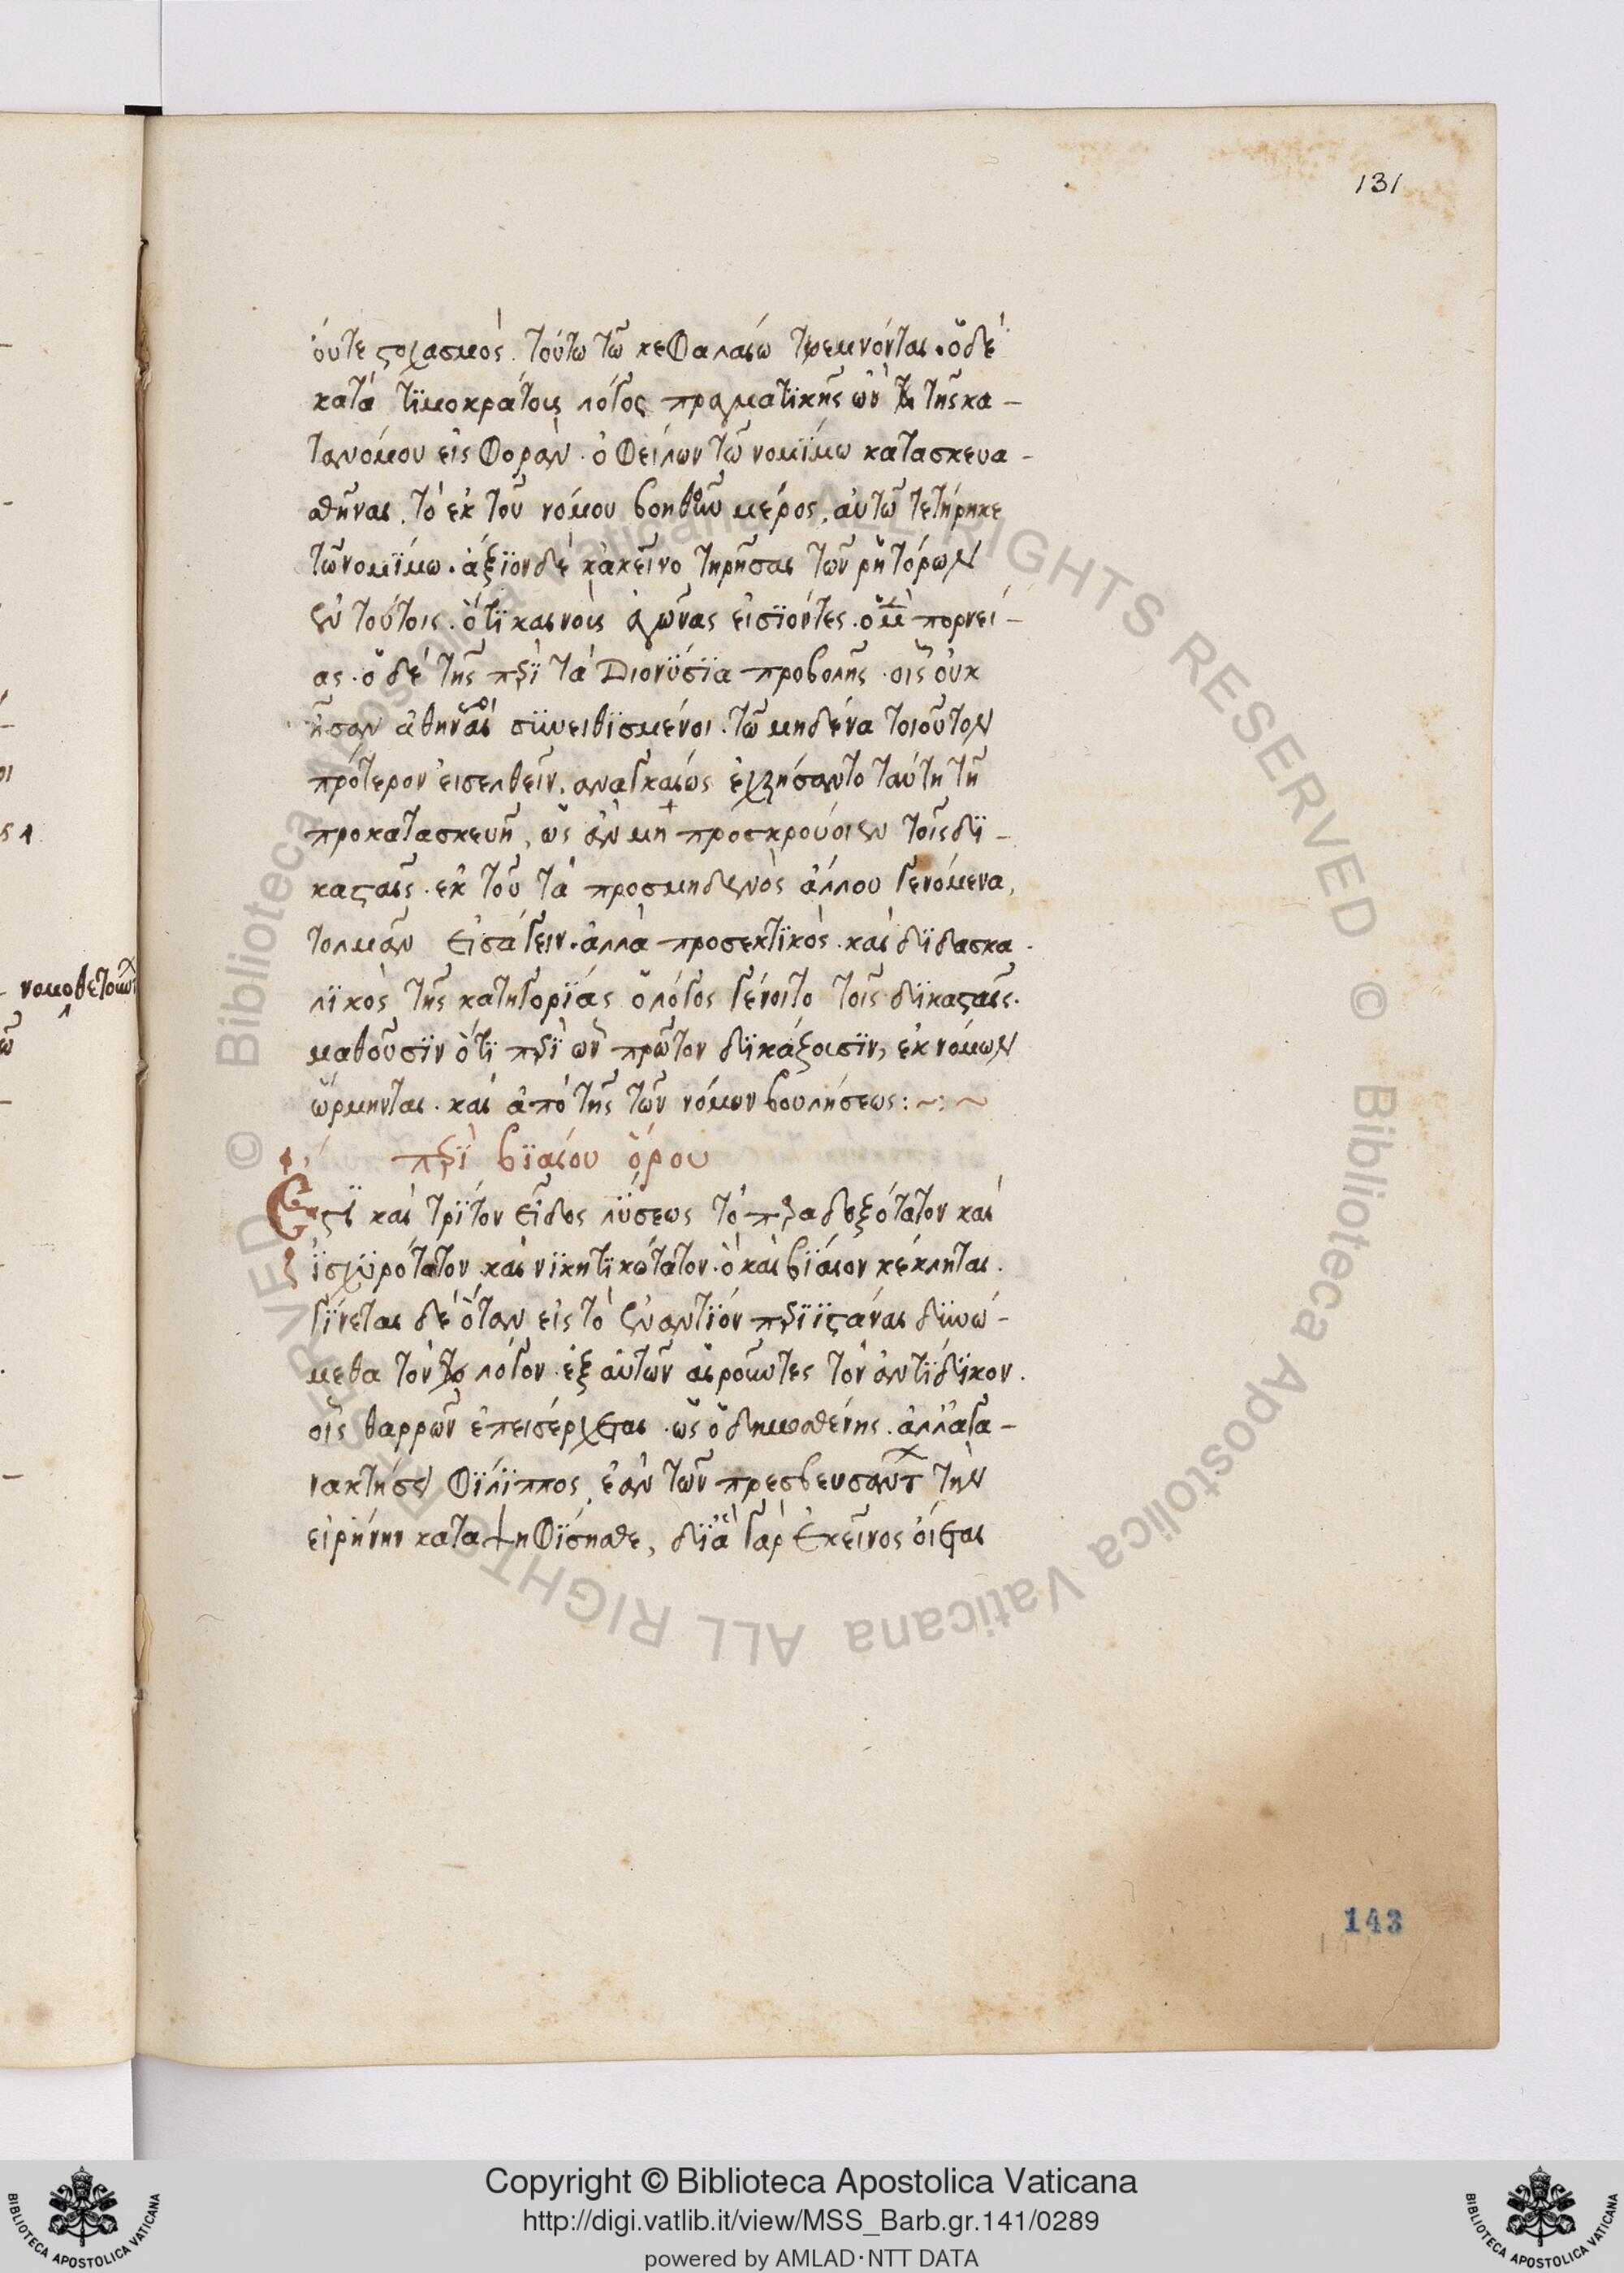 131
όυτε στοχασμὸς. τούτω τῶ κεφαλαίω τρεμνόνται. ὃδὲ
κατὰ τϊμοκράτους λόγος πραγματικῆς ὢν τῆς κα -
τανόμου εἰσφορὰν. ὀφείλων τῶ νομϊμω κατασκευα -
σθῆναι. τὸ ἐκ τοῦ νόμου βοηθοῦν μέρος, αὐτῶ τετήρηκε
τῶ νομϊμω. ἄξϊον δὲ κἀκεῖνο τηρῆσαι τῶν ρητόρων
ἐν τούτοις. ὅτϊ καινοὺς ἀγῶνας εἰσϊόντες. πορνεί -
ας. ὃ δὲ τῆς περὶ τὰ Διονϋσϊα προβολῆς. οἷς οὐκ
ἦσαν ἀθηναῖοι σϋνειθϊσμένοι. τῶ μηδένα τοιοῦτον
πρότερον εἰσελθεῖν. αναγκαίως ἐχρήσαντο ταύτη τῆ
προκατασκευῆ, ὡς ἂν μὴ προσκρούοιεν τοῖς δϊ -
κασταῖς. ἐκ τοῦ τὰ προσμηδενὸς ἄλλου γενόμενα,
τολμᾶν εἰσάγειν. ἀλλὰ προσεκτϊκὸς. καὶ δϊδασκα -
λϊκὸς τῆς κατηγορϊας ὁ λόγος γένοιτο τοῖς δϊκασταῖς.
μαθοῦσϊν ὅτϊ περὶ ὧν πρῶτον δϊκάζουσϊν, ἐκ νόμων
ὥρμηνται. καὶ ἀπὸ τῆς τῶν νόμων βουλήσεως :~:~
περὶ βϊαίου ὅρου
Ἔστϊ καὶ τρϊτον εἶδος λϋσεως τὸ παραδοξότατον καὶ
ϊσχϋρότατον καὶ νϊκητϊκώτατον. ὃ καὶ βϊαιον κέκληται.
γϊνεται δὲ ὅταν εἰς τὸ ἐναντϊον περιϊστάναι δϋνώ -
μεθα τὸν λόγον. ἐξ αὐτῶν αἱροῦντες τὸν ἀντϊδϊκον.
οἷς θαρρῶν ἐπεισέρχεται. ὡς ὁ δημοσθένης. ἀλλ' ἀγα -
νακτήσει φϊλϊππος, ἐὰν τῶν πρεσβευσάντων τὴν
εἰρήνην καταψηφϊσησθε, δϊὰ γὰρ ἐκεῖνος οἴεται
143
Copyright © Biblioteca Apostolica Vaticana
http://digi.vatlib.it/view/MSS_Barb.gr.141/0289
powered by AMLAD·NTT DATA